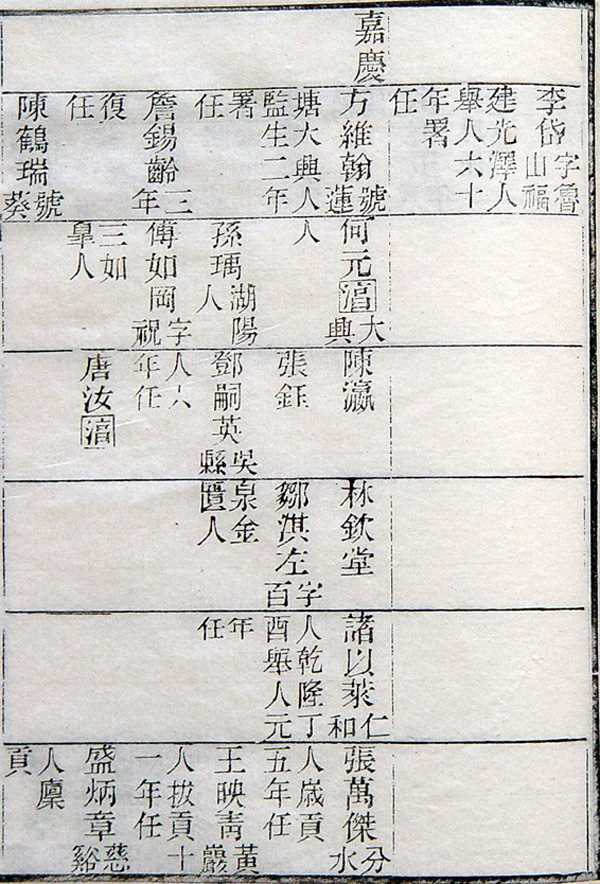 嘉慶
李岱字魯山福
建光澤人
舉人六十
年署
任
方維翰號蓮
塘大興人
監生二年
署
任
詹錫齡三年
復
任
陳鶴瑞號葵
何元大興
人
孫瑀湖陽人
傅如岡字祝
三如
皐人
陳瀛
張鈺
鄧嗣英吳縣
人六
年任
唐汝
林欽堂
鄒淇左字百
泉金
匱人
諸以萊仁和
人乾隆丁
酉舉人元
年
任
張萬傑分水
人歲貢
五年任
王映青黃巖
人拔貢十
一年任
盛炳章慈谿
人廩
貢